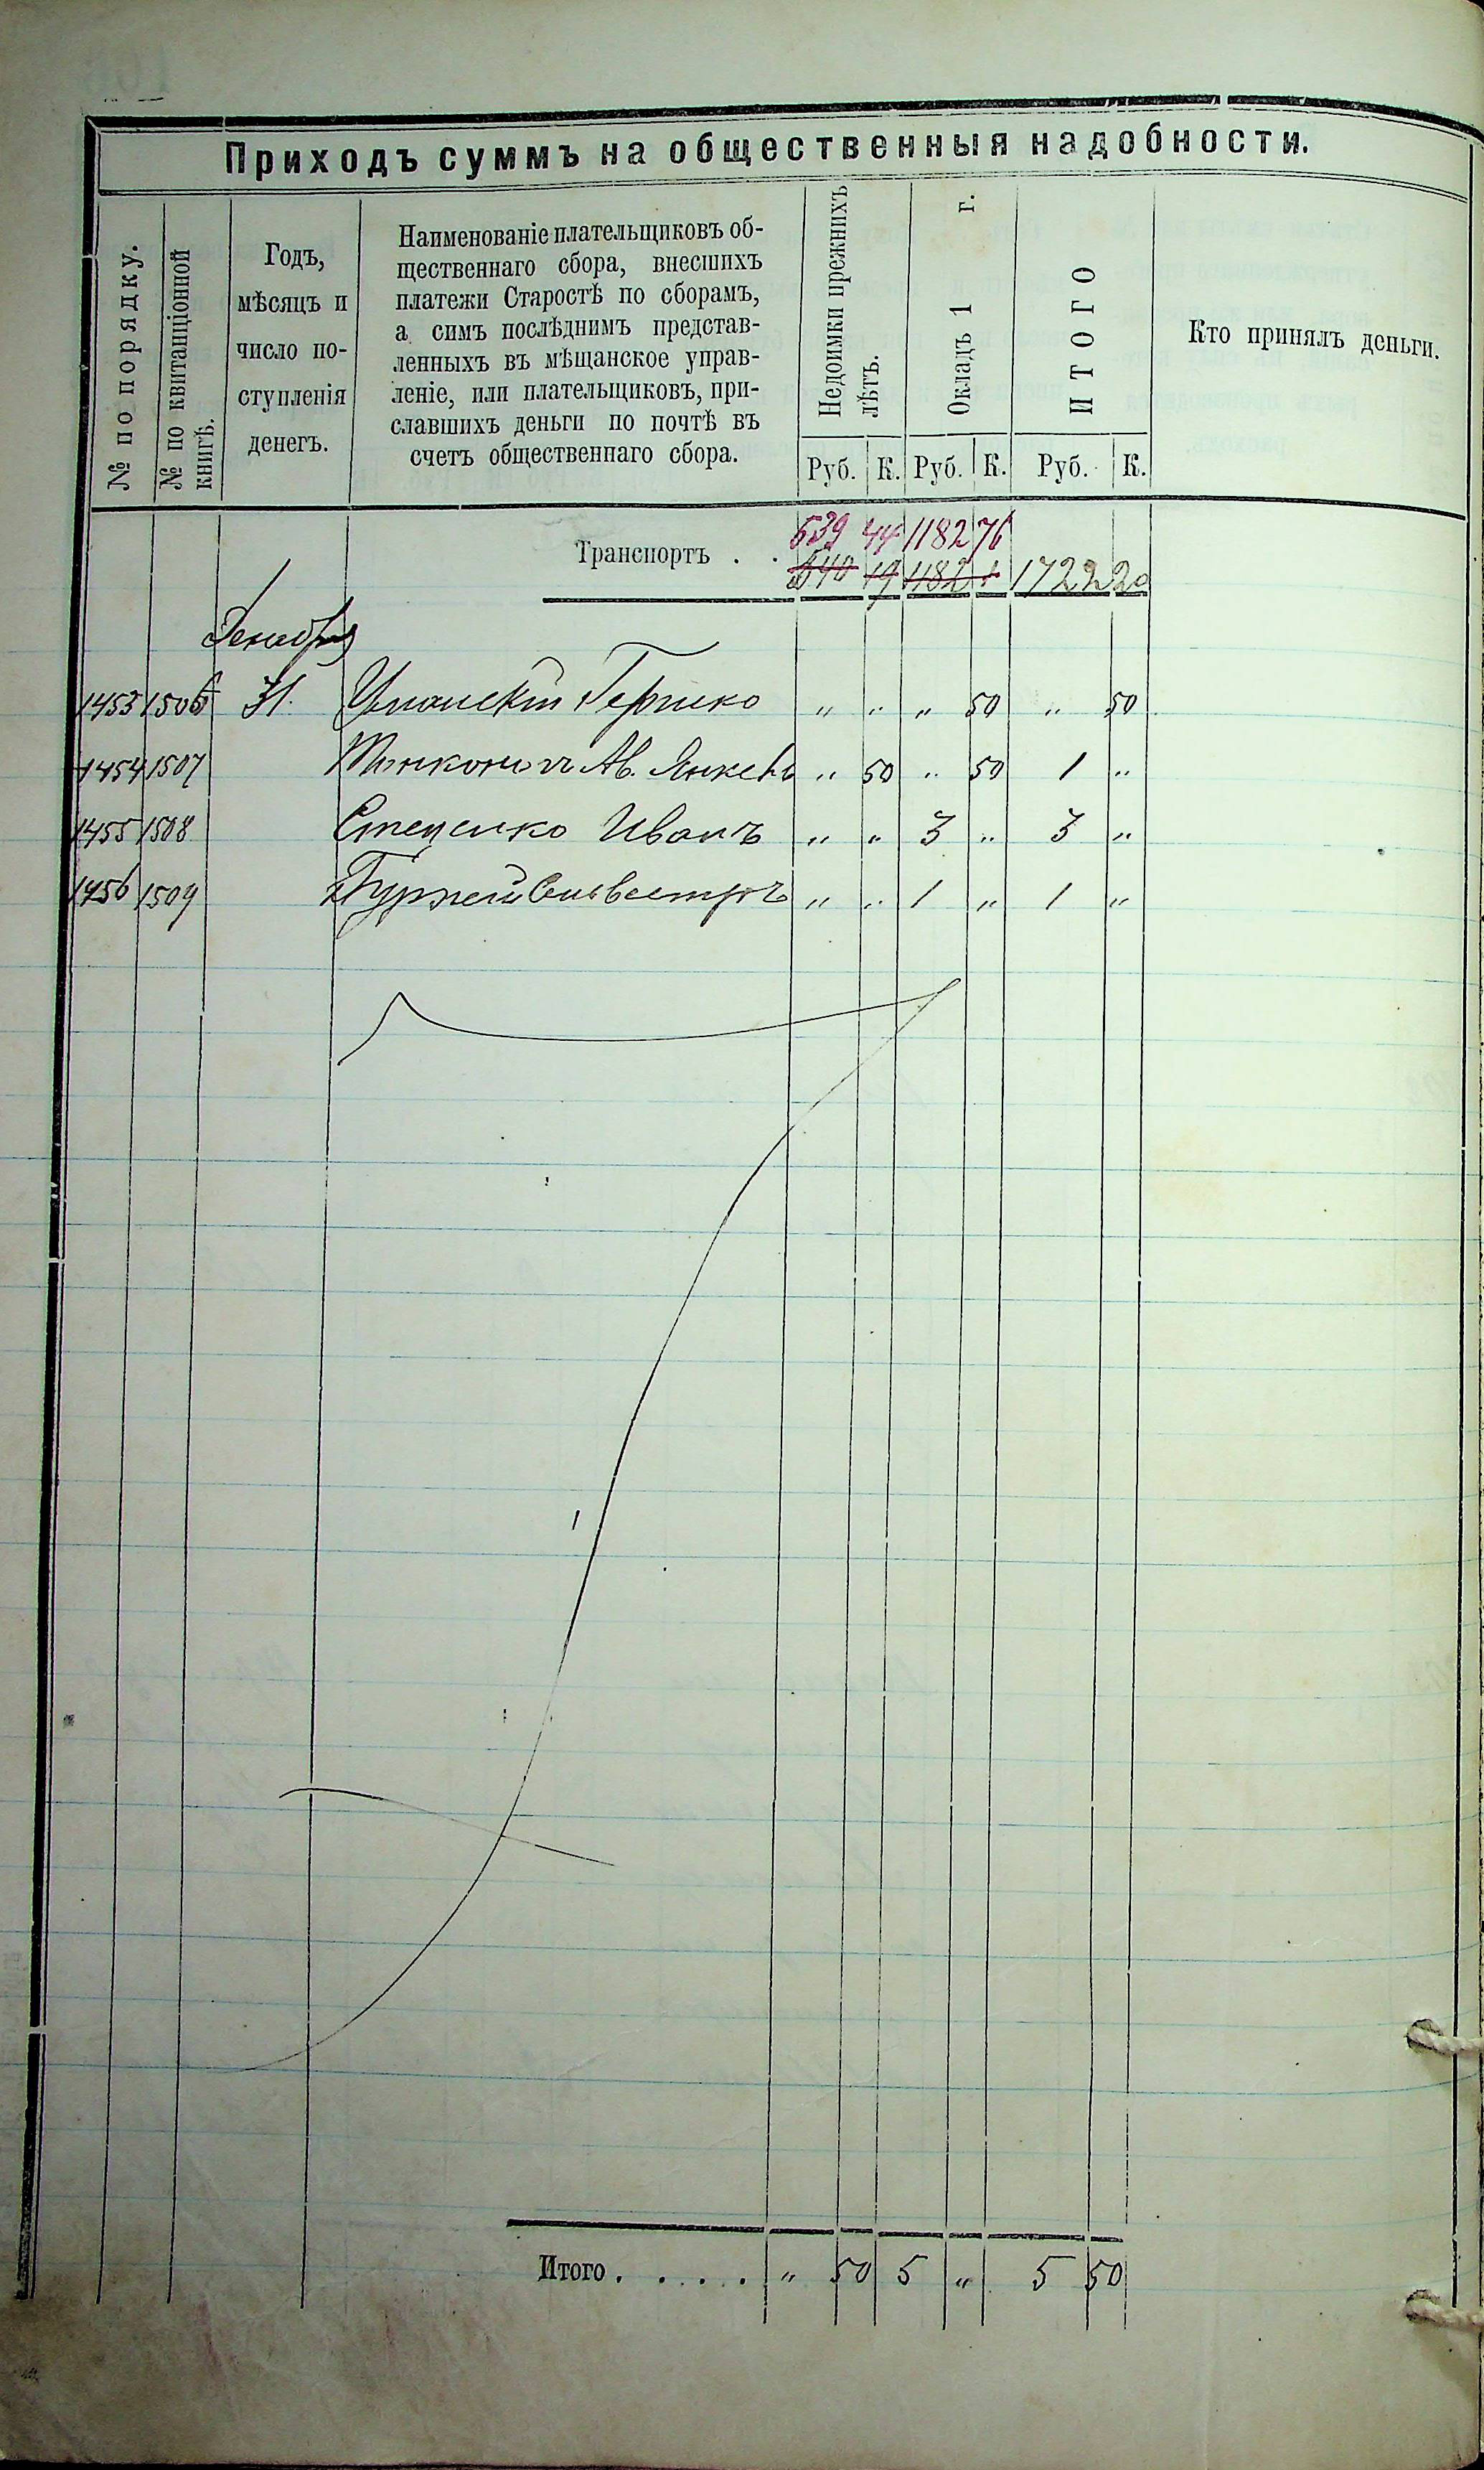 Приходъ суммъ на общественныя надобности.
№ по порядку.
№ по квитанціонной
книгѣ.
Годъ,
мѣсяцъ и
число по-
ступленія
денегъ.
Наименованіе плательщиковъ об-
щественнаго сбора, внесшихъ
платежи Старостѣ по сборамъ,
а симъ послѣднимъ представ-
ленныхъ въ мѣщанское управ-
леніе, или плательщиковъ, при-
славшихъ деньги по почтѣ въ
счетъ общественнаго сбора.
Недоимки прежнихъ
лѣтъ.
Окладъ 1 г.
ИТОГО
Кто принялъ деньги.
Руб. К. Руб. К. Руб. К.
539 44 1182 76
Транспортъ . . 540 19 1182 1 1722 20
Декабря
1453 1506 31. Уманскій Гершко " " " 50 " 50
1454 1507 Ав. Янкель " 50 " 50 1 "
1455 1508 Стеценко Иванъ " " 3 " 3 "
1456 1509 Сильвестръ " " 1 " 1 "
Итого . . . . . " 50 5 " 5 50